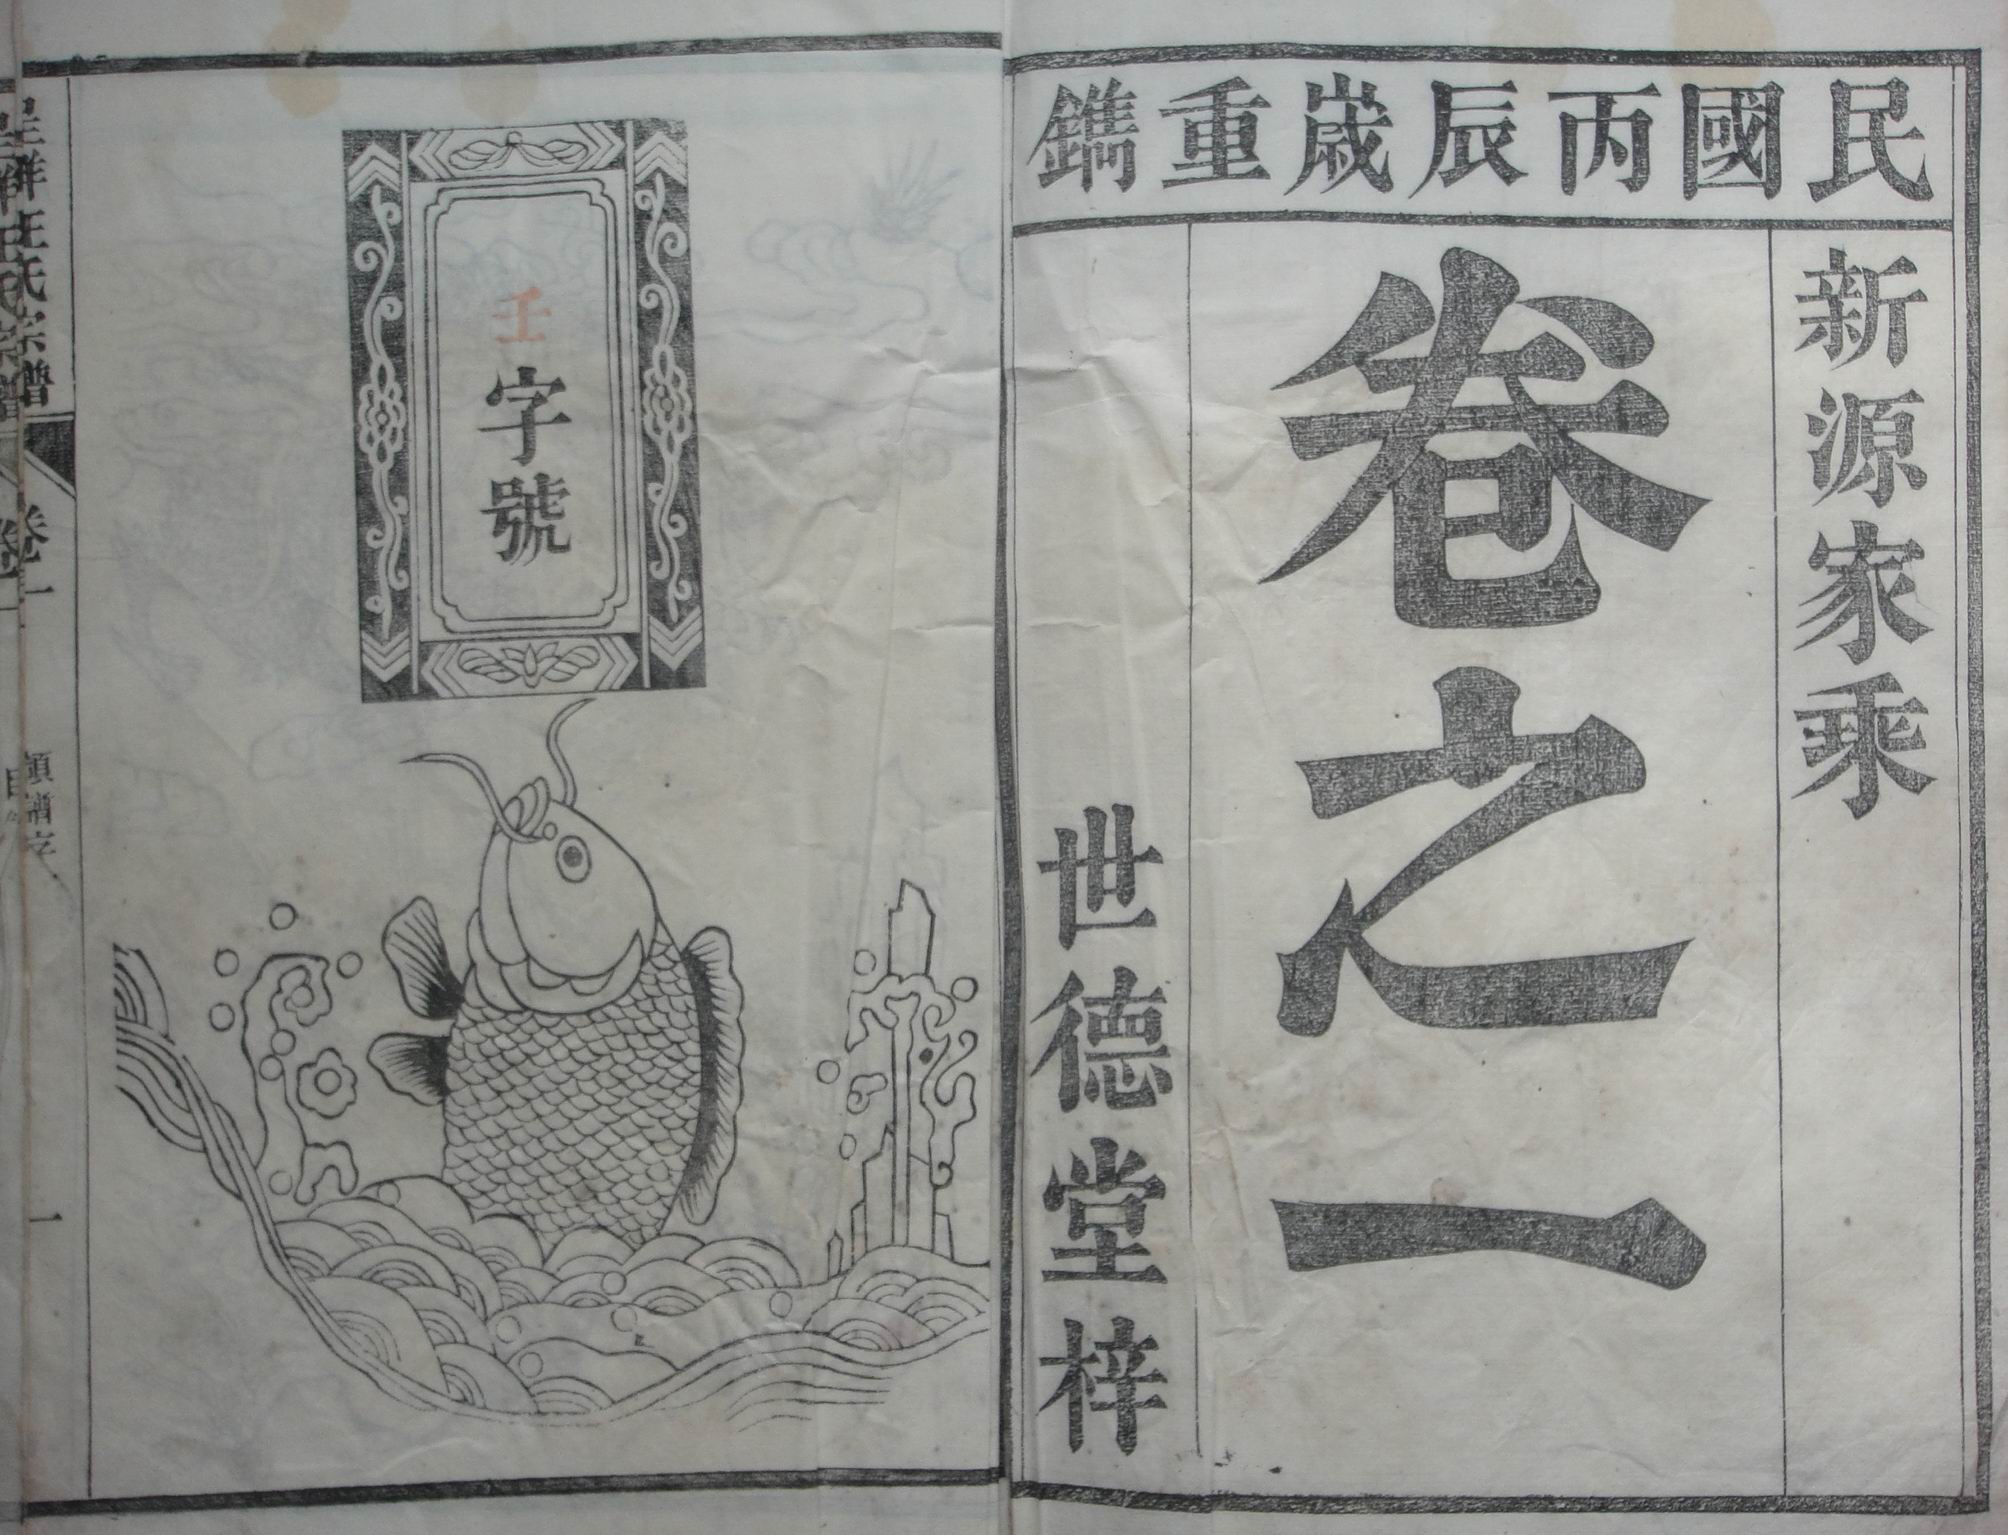 民國丙辰歲重鐫
新源家乘
卷之一
世德堂梓
壬字號
汪氏宗譜
卷一
領譜字
一